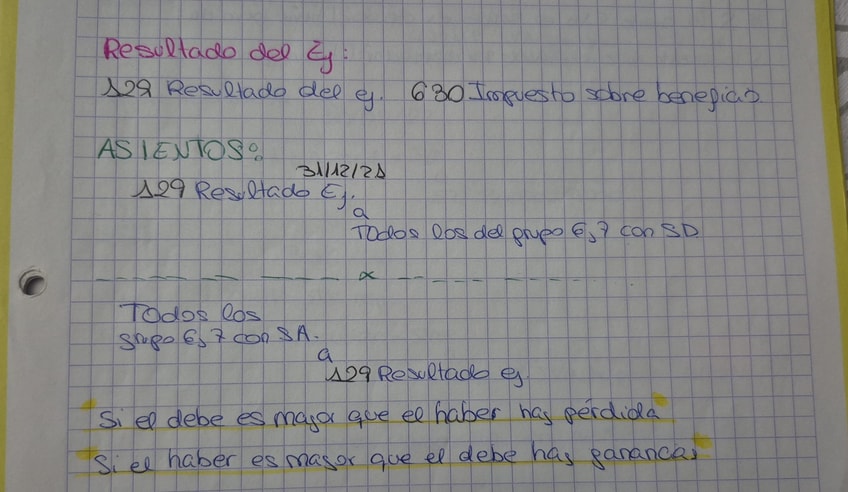 Resultado del Ej:
129 Resultado del ej. 630 Impuesto sobre beneficio
ASIENTOS:
31/12/21
129 Resultado Ej.
a
Todos los del grupo 6,7 con SD
Todos los
grupo 6,7 con SA.
a
129 Resultado ej
"Si el debe es mayor que el haber has pérdida"
"Si el haber es mayor que el debe has ganancas"